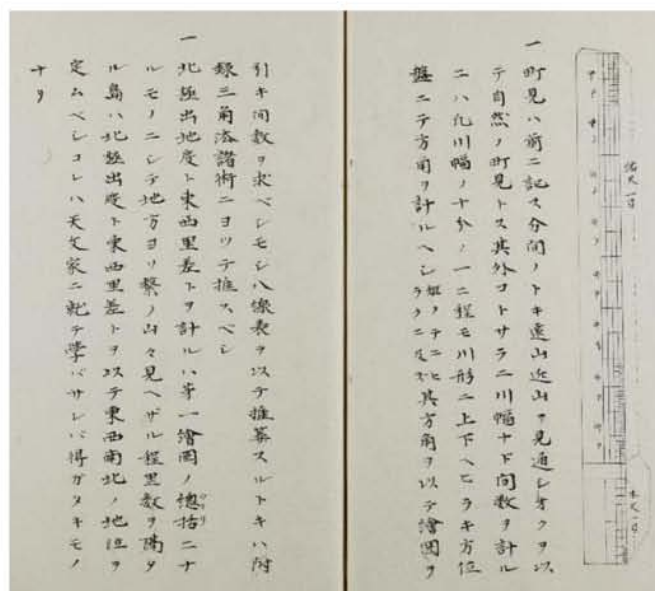 一町見ハ前ニ記ス分間ノトキ遠山近山ヲ見通シオクヲ以
テ自然ノ町見トス其外コトサラニ川幅ナド間数ヲ計ル
ニハ凡川幅ノ十分ノ一ニ程モ川形ニ上下ヘヒラキ方位
盤ニテ方角ヲ計ルヘシ 其方角ヲ以テ繪圖ヲ
引キ間数ヲ求ベシモシ八線表ヲ以テ推筭スルトキハ附
録三角法諸術ニヨツテ推スベシ
一北極出地度ト東西里差トヲ計ルハ第一繪圖ノ總括ニナ
ルモノニシテ地方ヨリ繋ノ山々見ヘザル程里数ヲ隔タ
ル島ハ北極出度ト東西里差トヲ以テ東西南北ノ地位ヲ
定ムベシコレハ天文家ニ就テ學バサレバ得ガタキモノ
ナリ